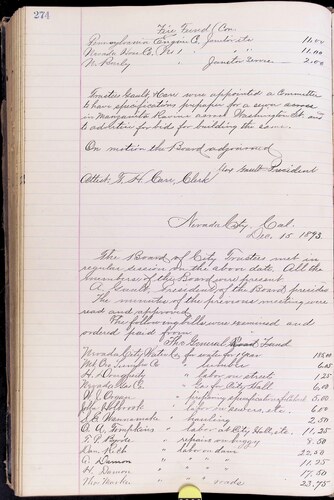 274
Fire Fund Con.
Pennsylvania Engine Co. Janitor etc 11.00
Nevada Hose Co. No 1 " " 11.00
Janitor 2.00
Trustees Gault & Carr were appointed a Committee
to have specifications prepared for a sewer across
in Manzanita Ravine across Washington St. and
to advertise for bids for building the same.
On motion the Board adjourned
Gault President
Attest: T. H. Carr, Clerk
Nevada City, Cal.
Dec. 15 1893
The Board of City Trustees met in
regular session on the above date. All the
members of the Board were present
A. Gault, President of the Board, presided
The minutes of the previous meeting were
read and approved
The following bills were examined and
ordered paid from
The General Fund
Nevada City Water Co. for water for 1 year
Mt. Oro Lumber Co " lumber 6.05
H. " labor on street 1.25
Nevada Gas Co. " Gas for City Hall 6.10
W. J. Organ " 5.00
Holbrook " labor on sewers, etc. 6.00
J. C. " 2.50
O. A. Tompkins " labor at City Hall, etc. 11.25
" repairs on buggy 9.50
Dan Rich " labor on dam 22.50
C. Damon " " " 11.25
H. Damon " " " 17.50
" " roads 23.75